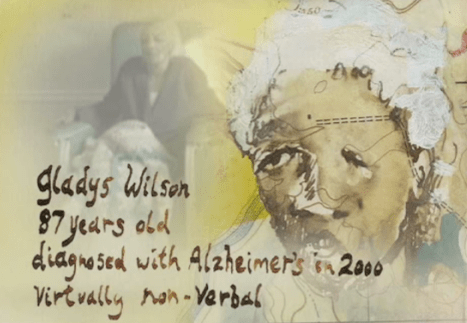 Gladys Wilson
87 years old
diagnosed with Alzheimer's in 2000
Virtually non-Verbal